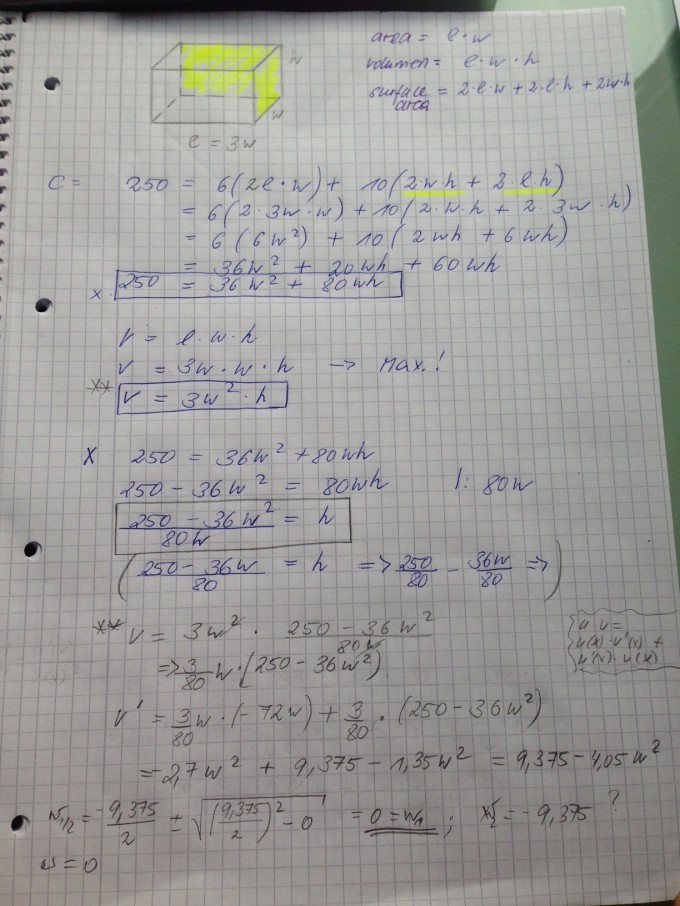 area = l · w
volumen = l · w · h
surface area = 2·l·w + 2·l·h + 2w·h
h
w
l = 3w
C = 250 = 6(2l·w) + 10(2·w·h + 2·l·h)
= 6(2·3w·w) + 10(2·w·h + 2·3w·h)
= 6(6w²) + 10(2wh + 6wh)
= 36w² + 20wh + 60wh
x 250 = 36w² + 80wh
V = l·w·h
V = 3w·w·h → max.!
** V = 3w²·h
X 250 = 36w² + 80wh
250 - 36w² = 80wh |: 80w
(250 - 36w²)/80w = h
((250 - 36w)/80 = h => 250/80 - 36w/80 =>)
** V = 3w² · (250 - 36w²)/80w
=> 3/80 w·(250 - 36w²)
u·v =
u(x)·v'(x) +
u'(x)·v(x)
V' = 3/80 w·(-72w) + 3/80·(250 - 36w²)
= 2,7w² + 9,375 - 1,35w² = 9,375 - 4,05w²
w1/2 = -9,375/2 ± √((9,375/2)² - 0) = 0 = w1 ; = -9,375 ?
w = 0